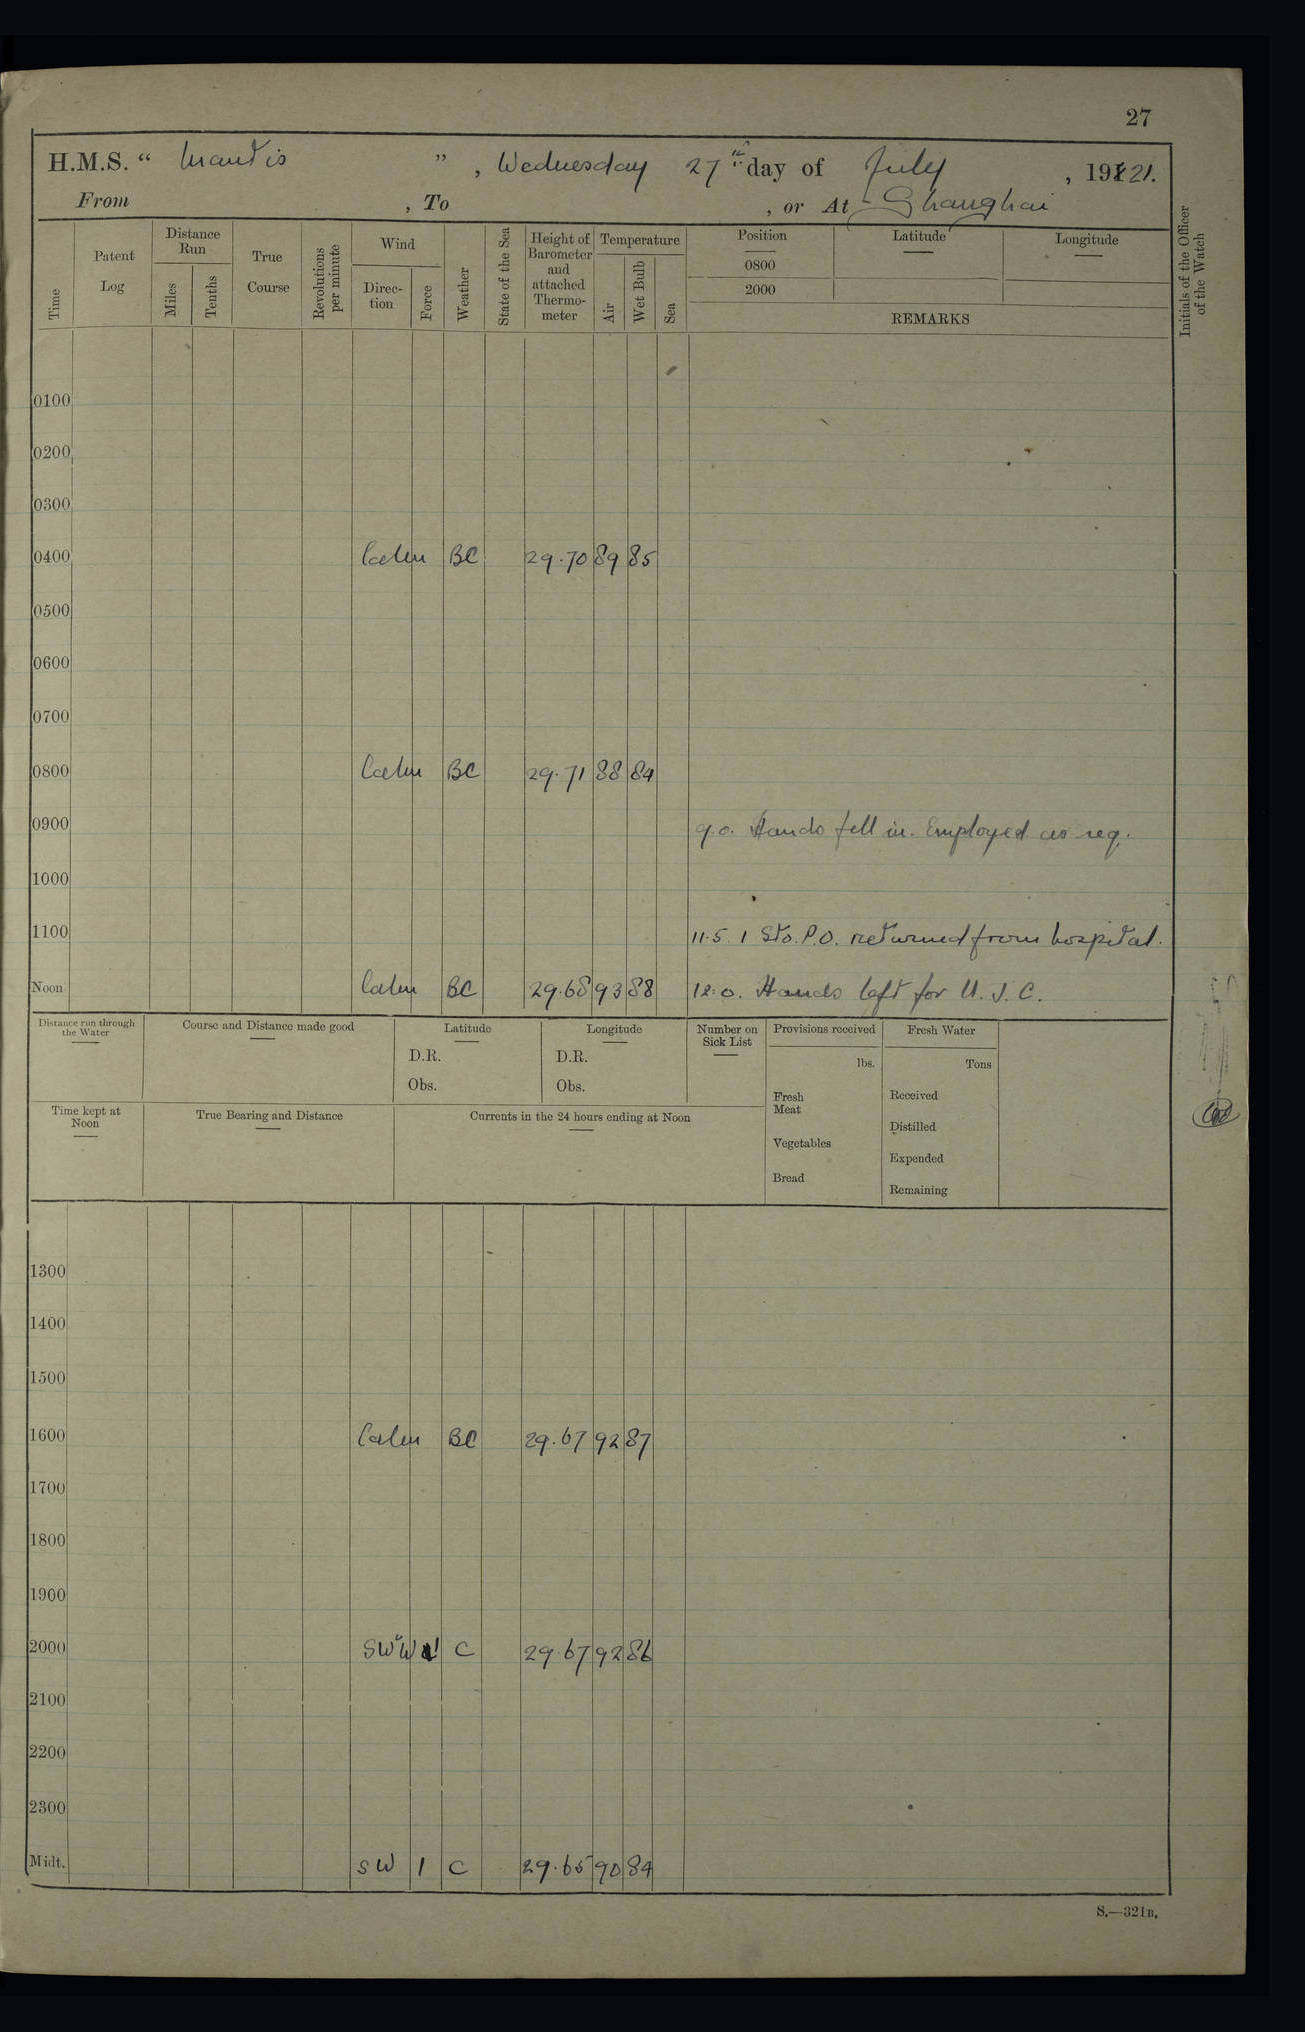 27
H.M.S. " Mantis ", Wednesday 27th day of July, 1921.
From , To , or At Shanghai
Time
Patent Log
Distance Run
Miles
Tenths
True Course
Revolutions per minute
Wind
Direc-tion
Force
Weather
State of the Sea
Height of Barometer and attached Thermo-meter
Temperature
Air
Wet Bulb
Sea
Position
0800
2000
Latitude
Longitude
REMARKS
Initials of the Officer of the Watch
0100
0200
0300
0400 Calm BC 29.70 89 85
0500
0600
0700
0800 Calm BC 29.71 88 84
0900 9.0. Hands fell in. Employed as req.
1000
1100 11.5. 1 Sto. P.O. returned from hospital.
Noon Calm BC 29.68 93 88 12.0. Hands left for U.J.C.
Distance run through the Water
Course and Distance made good
Latitude
D.R.
Obs.
Longitude
D.R.
Obs.
Number on Sick List
Provisions received
lbs.
Fresh Meat
Vegetables
Bread
Fresh Water
Tons
Received
Distilled
Expended
Remaining
Time kept at Noon
True Bearing and Distance
Currents in the 24 hours ending at Noon
1300
1400
1500
1600 Calm BC 29.67 92 87
1700
1800
1900
2000 SW"W 1 C 29.67 92 86
2100
2200
2300
Midt. SW 1 C 29.65 90 84
S.—321B.